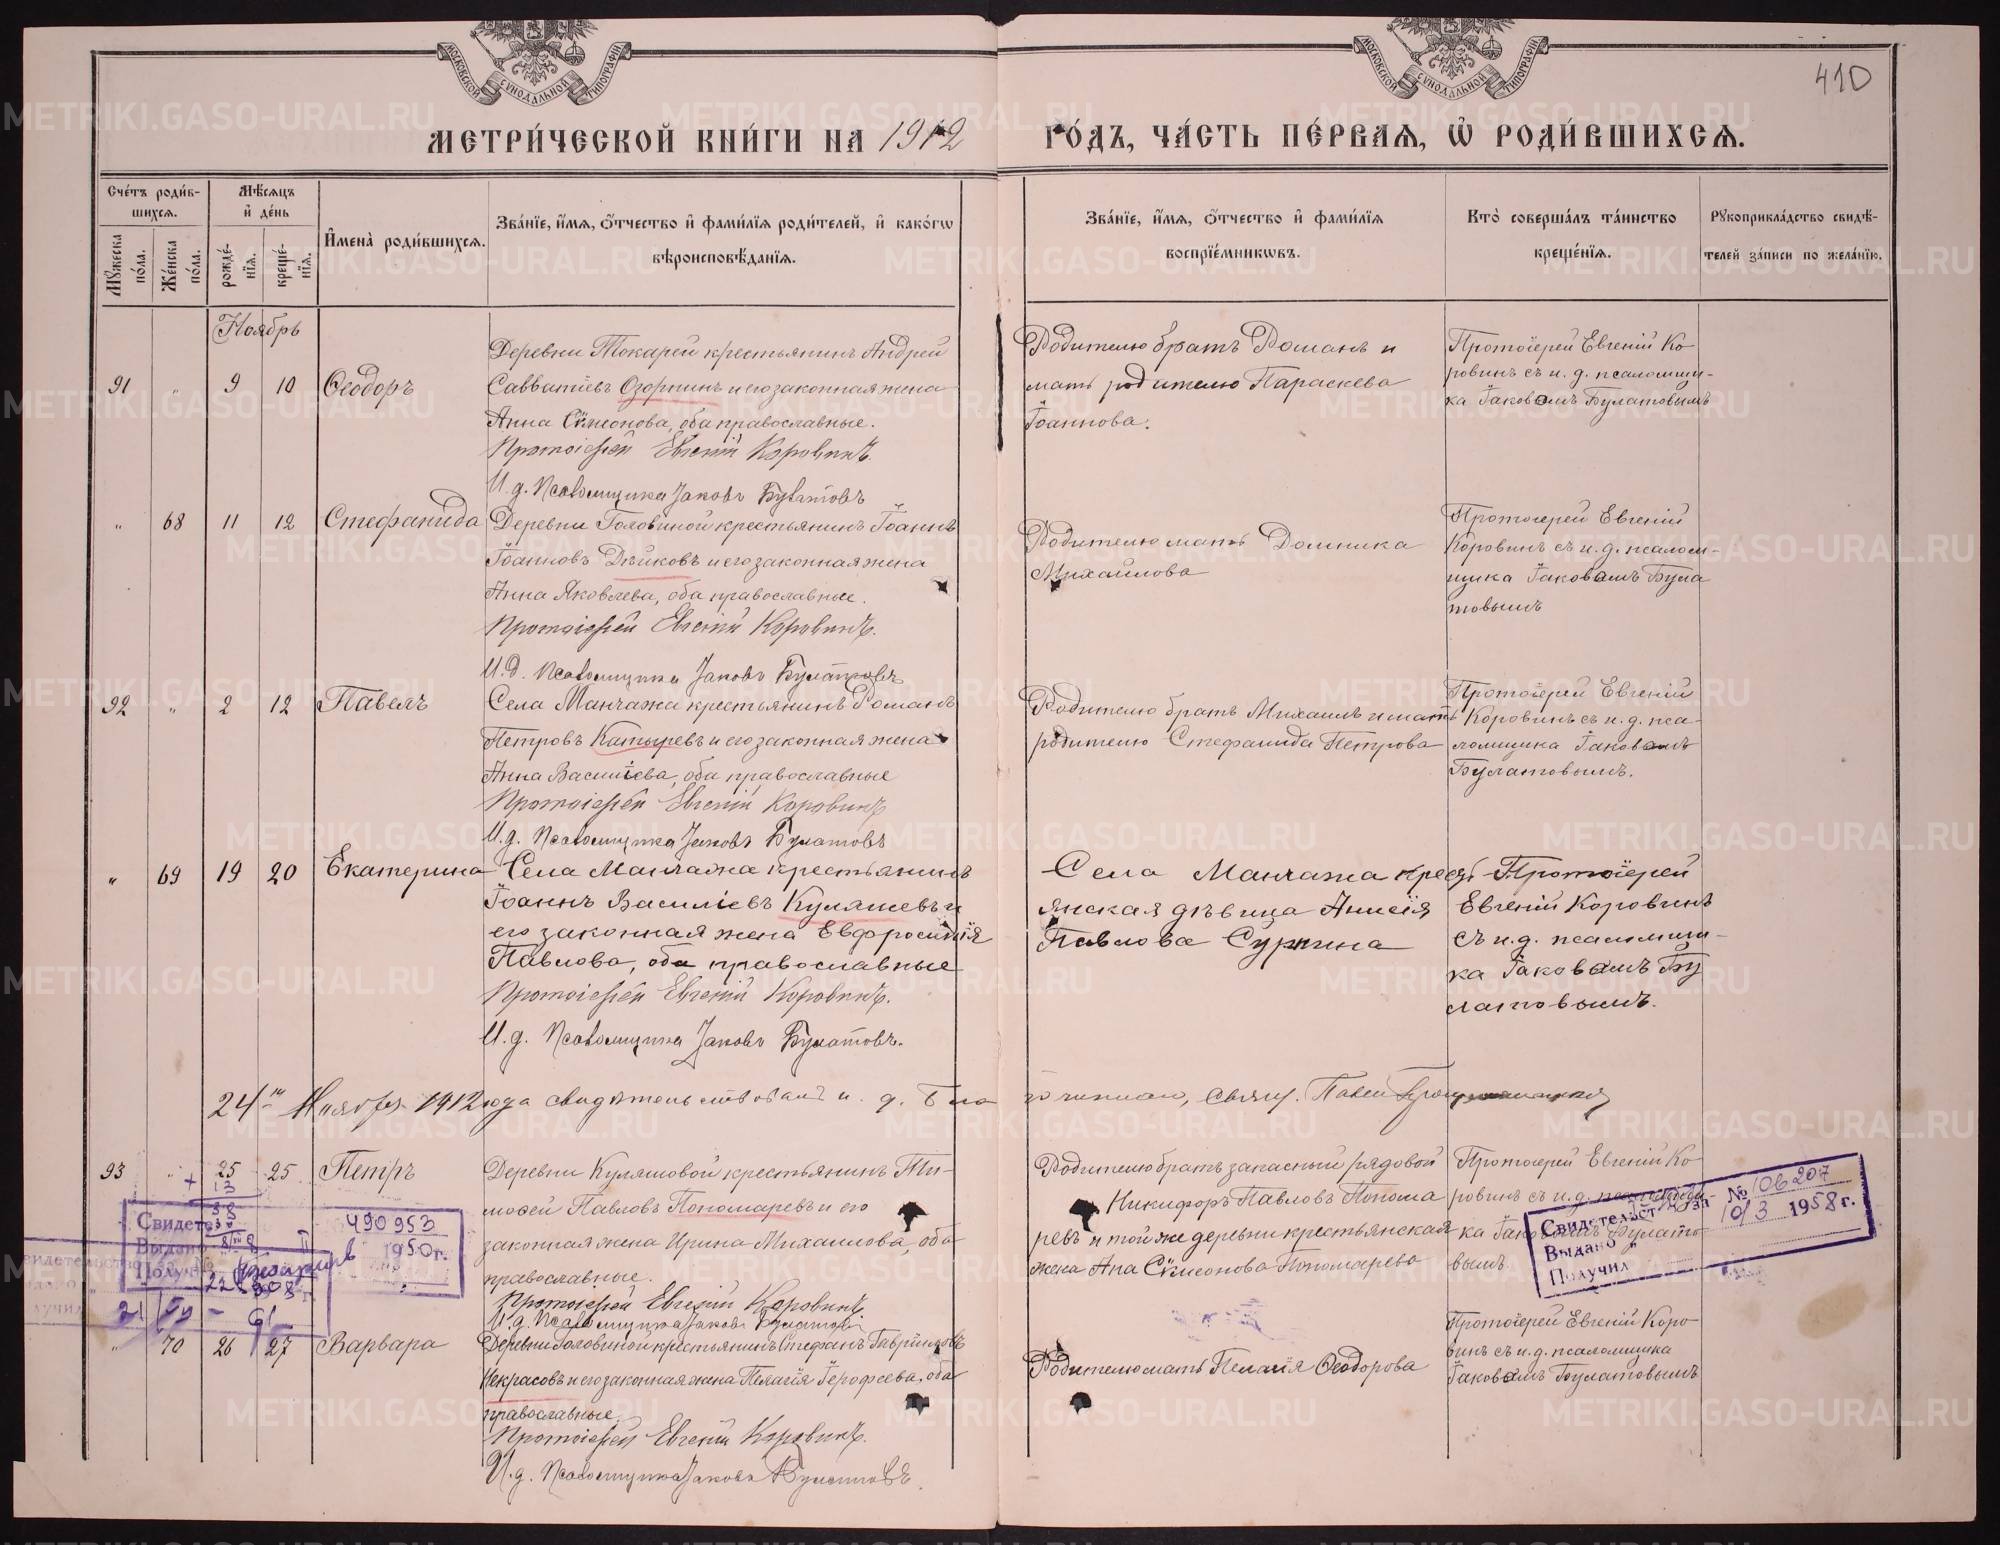 МОСКОВСКОЙ СѴНОДАЛЬНОЙ ТИПОГРАФІИ
МОСКОВСКОЙ СѴНОДАЛЬНОЙ ТИПОГРАФІИ
410
МЕТРИ́ЧЕСКОЙ КНИ́ГИ НА 1912 ГО́ДЪ, ЧА́СТЬ ПЕ́РВАЯ, Ѽ РОДИ́ВШИХСЯ.
Сче́тъ роди́в-
шихся.
Мѣ́сяцъ
и҆ де́нь
Мꙋжеска по́ла.
Же́нска по́ла.
рожде́-
нїя.
креще́-
нїя.
И҆мена̀ роди́вшихся.
Зва́нїе, и҆́мя, ѻ҆́тчество и҆ фами́лїя роди́телей, и҆ како́гѡ
вѣроисповѣ́данїя.
Зва́нїе, и҆́мя, ѻ҆́тчество и҆ фами́лїя
воспрїе́мникѡвъ.
Кто̀ соверша́лъ та́инство
креще́нїя.
Рꙋкоприкла́дство свидѣ́-
телей за́писи по жела́нїю.
Ноябрь
91 " 9 10 Ѳеодоръ
Деревни Токарей крестьянинъ Андрей
Савватіевъ Озорнинъ и его законная жена
Анна Сѵмеонова, оба православные.
Протоіерей Евгеній Коровинъ.
И.д. Псаломщика Іаковъ Булатовъ
Родителю братъ Романъ и
мать родителю Параскева
Іоаннова.
Протоіерей Евгеній Ко-
ровинъ съ и.д. псаломщи-
ка Іаковомъ Булатовымъ
" 68 11 12 Стефанида
Деревни Головиной крестьянинъ Іоаннъ
Іоанновъ Дѣйковъ и его законная жена
Анна Яковлева, оба православные.
Протоіерей Евгеній Коровинъ.
И.д. Псаломщика Іаковъ Булатовъ
Родителю мать Домника
Михайлова
Протоіерей Евгеній
Коровинъ съ и.д. псалом-
щика Іаковомъ Була
товымъ
92 " 2 12 Павелъ
Села Манчажа крестьянинъ Романъ
Петровъ Катыревъ и его законная жена
Анна Василіева, оба православные
Протоіерей Евгеній Коровинъ
И.д. Псаломщика Іаковъ Булатовъ
Родителю братъ Михаилъ и мать
родителю Стефанида Петрова
Протоіерей Евгеній
Коровинъ съ и.д. пса-
ломщика Іаковомъ
Булатовымъ.
" 69 19 20 Екатерина
Села Манчажа крестьянинъ
Іоаннъ Василіевъ Куляшевъ и
его законная жена Евфросинія
Павлова, оба православные
Протоіерей Евгеній Коровинъ.
И.д. Псаломщика Іаковъ Булатовъ.
Села Манчажа крест-
янская дѣвица Анисія
Павлова Суркина
Протоіерей
Евгеній Коровинъ
съ и.д. псаломщи-
ка Іаковомъ Бу
латовымъ.
24го Ноября 1912 года свидѣтельствовалъ и.д. Благочиннаго, свящ. Павел
93 " 25 25 Петръ
Деревни Куляшовой крестьянинъ Ти-
моѳей Павловъ Пономаревъ и его
законная жена Ирина Михаилова, оба
православные.
Протоіерей Евгеній Коровинъ.
И.д. Псаломщика Іаковъ Булатовъ
Родителю братъ запасный рядовой
Никифоръ Павловъ Понома
ревъ и той же деревни крестьянская
жена Анна Сѵмеонова Пономарева
Протоіерей Евгеній Ко-
ровинъ съ и.д. псаломщи-
ка Іаковомъ Булато-
вымъ.
Свидетел 490953
Выдано 1950 г.
Получил
Свидетельст № 106207
Выдано 10/3 1958 г.
Получил
" 70 26 27 Варвара
Деревни Головиной крестьянинъ Стефанъ Гавриловъ
Некрасовъ и его законная жена Пелагія Іерофеева, оба
православные.
Протоіерей Евгеній Коровинъ.
И.д. Псаломщика Іаковъ Булатовъ.
Родителю мать Пелагія Ѳеодорова
Протоіерей Евгеній Коро-
винъ съ и.д. псаломщика
Іаковомъ Булатовымъ
METRIKI.GASO-URAL.RU